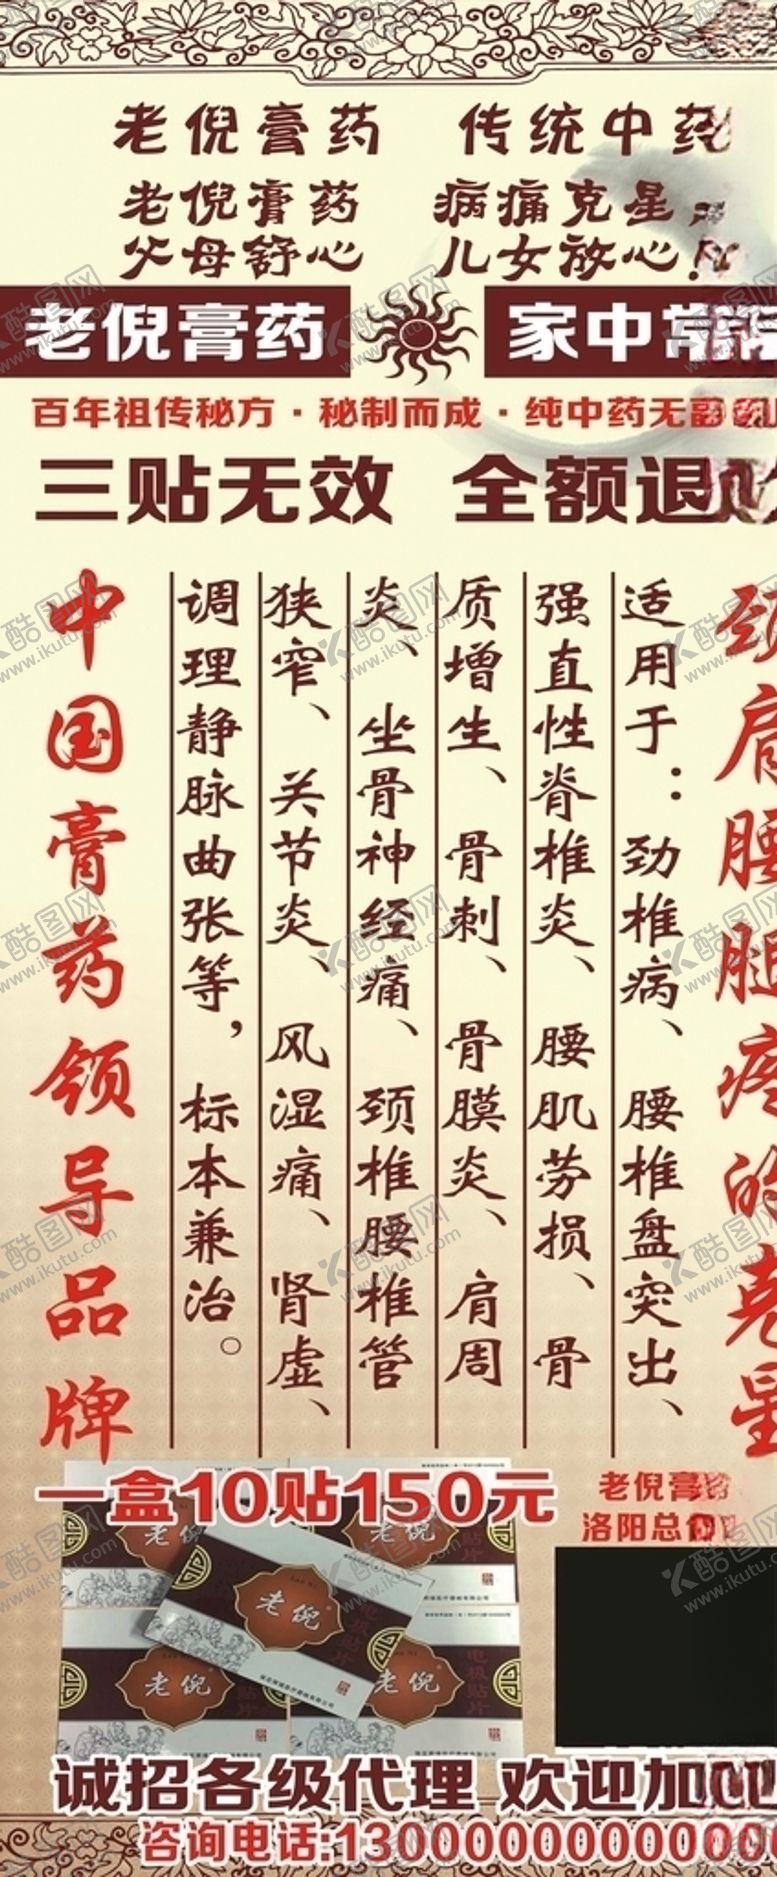 老倪膏药 传统中药
老倪膏药 病痛克星
父母舒心 儿女放心!
老倪膏药 家中常
百年祖传秘方·秘制而成·纯中药无副
三贴无效 全额退
颈肩腰腿疼的克星
适用于：劲椎病、腰椎盘突出、
强直性脊椎炎、腰肌劳损、骨
质增生、骨刺、骨膜炎、肩周
炎、坐骨神经痛、颈椎腰椎管
狭窄、关节炎、风湿痛、肾虚、
调理静脉曲张等，标本兼治。
中国膏药领导品牌
一盒10贴150元
老倪膏
洛阳总
老倪
老倪
老倪
电极贴片
诚招各级代理 欢迎加
咨询电话:130000000000
酷图网
www.ikutu.com